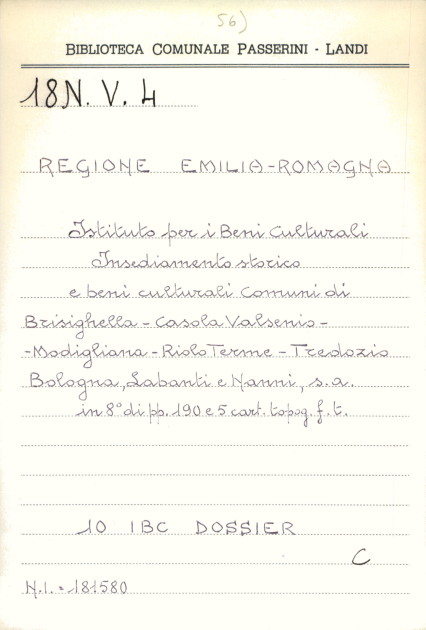 56)
BIBLIOTECA COMUNALE PASSERINI - LANDI
18N. V. 4
REGIONE EMILIA-ROMAGNA
Istituto per i Beni Culturali
Insediamento storico
e beni culturali Comuni di
Brisighella - Casola Valsenio -
- Modigliana - Riolo Terme - Tredozio
Bologna, Labanti e Nanni, s.a.
in 8° di pp. 190 e 5 cart. topog. f. t.
10 IBC DOSSIER
C
N.I. = 181580